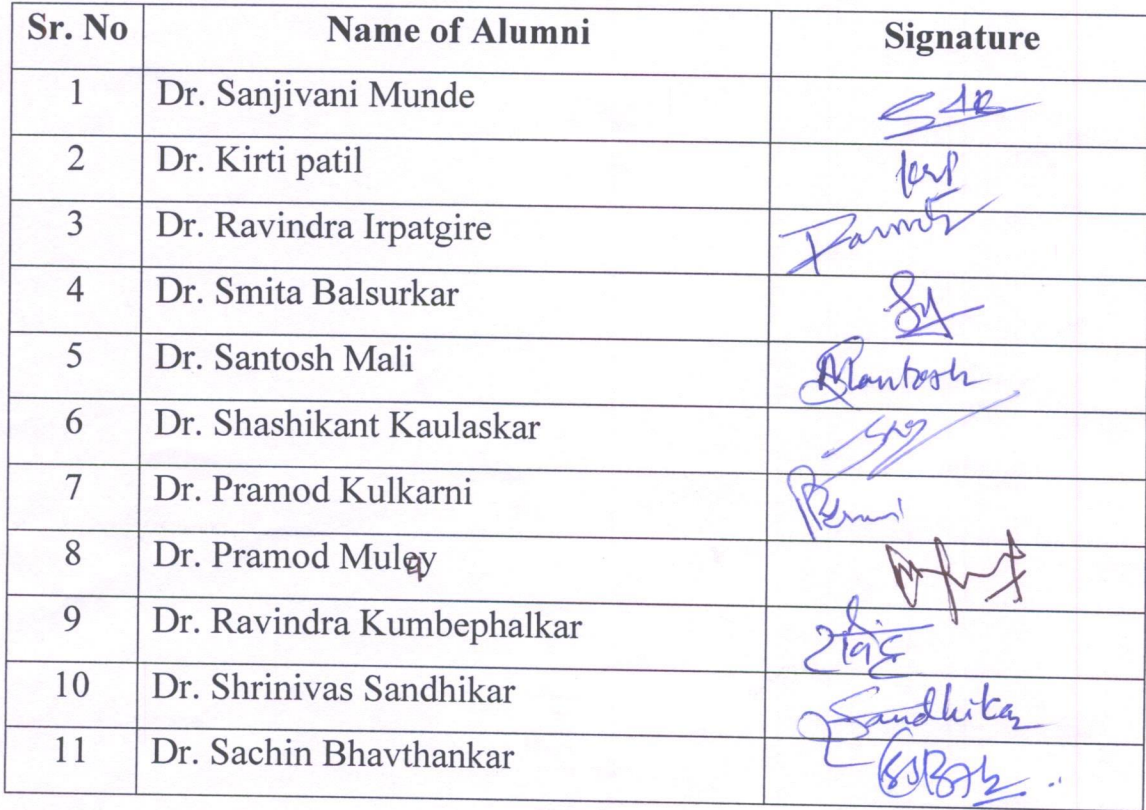 Sr. No Name of Alumni Signature
1 Dr. Sanjivani Munde
2 Dr. Kirti patil
3 Dr. Ravindra Irpatgire
4 Dr. Smita Balsurkar
5 Dr. Santosh Mali Santosh
6 Dr. Shashikant Kaulaskar
7 Dr. Pramod Kulkarni
8 Dr. Pramod Muley
9 Dr. Ravindra Kumbephalkar
10 Dr. Shrinivas Sandhikar Sandhikar
11 Dr. Sachin Bhavthankar